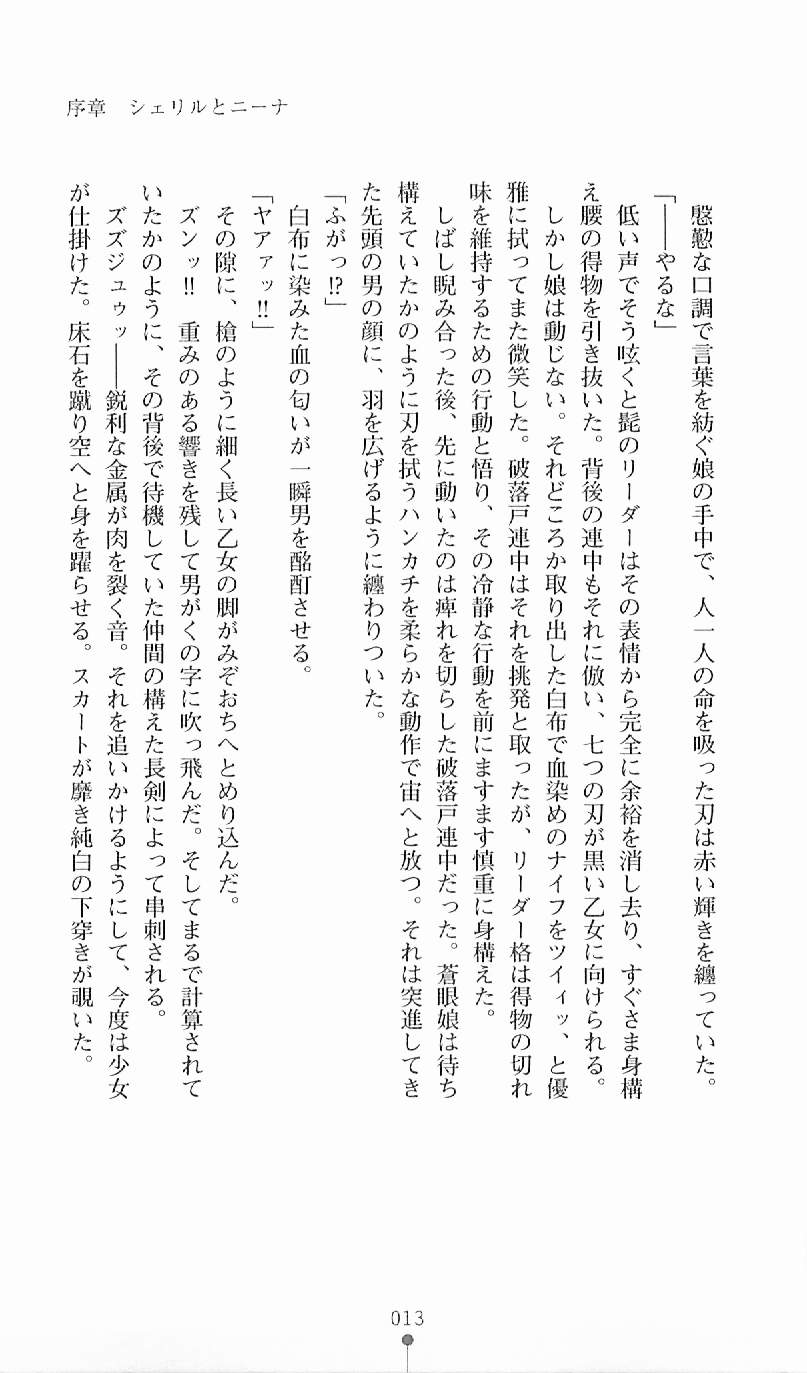 序章　シェリルとニーナ
慇懃な口調で言葉を紡ぐ娘の手中で、人一人の命を吸った刃は赤い輝きを纏っていた。
「――やるな」
低い声でそう呟くと髭のリーダーはその表情から完全に余裕を消し去り、すぐさま身構
え腰の得物を引き抜いた。背後の連中もそれに倣い、七つの刃が黒い乙女に向けられる。
しかし娘は動じない。それどころか取り出した白布で血染めのナイフをツイィッ、と優
雅に拭ってまた微笑した。破落戸連中はそれを挑発と取ったが、リーダー格は得物の切れ
味を維持するための行動と悟り、その冷静な行動を前にますます慎重に身構えた。
しばし睨み合った後、先に動いたのは痺れを切らした破落戸連中だった。蒼眼娘は待ち
構えていたかのように刃を拭うハンカチを柔らかな動作で宙へと放つ。それは突進してき
た先頭の男の顔に、羽を広げるように纏わりついた。
「ふがっ!?」
白布に染みた血の匂いが一瞬男を酩酊させる。
「ヤアァッ!!」
その隙に、槍のように細く長い乙女の脚がみぞおちへとめり込んだ。
ズンッ!!　重みのある響きを残して男がくの字に吹っ飛んだ。そしてまるで計算されて
いたかのように、その背後で待機していた仲間の構えた長剣によって串刺される。
ズズジュゥッ――鋭利な金属が肉を裂く音。それを追いかけるようにして、今度は少女
が仕掛けた。床石を蹴り空へと身を躍らせる。スカートが靡き純白の下穿きが覗いた。
013